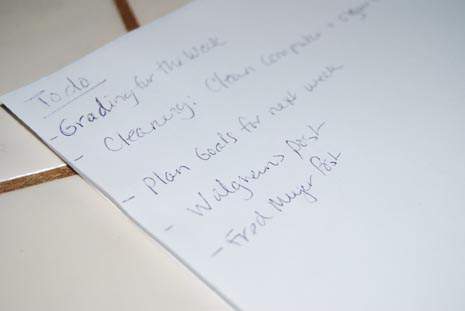 To do
- Grading for the Week
- Cleaning: Clean computer +
- Plan Goals for next week
- Walgreens post
- Fred Meyer Post